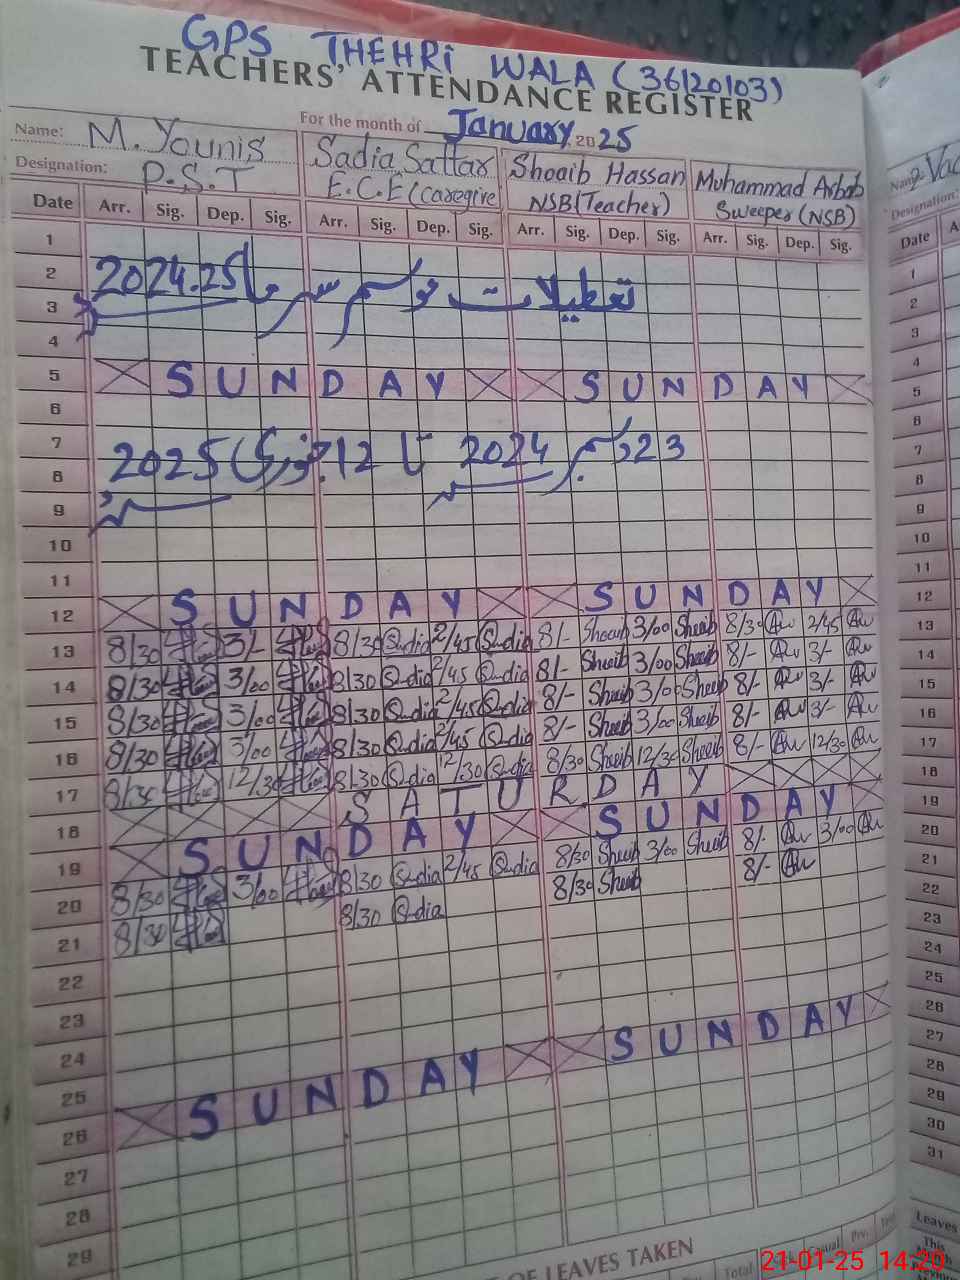 GPS THEHRi WALA (36120103)
TEACHERS' ATTENDANCE REGISTER
For the month of January, 2025
Name: M. Younis Sadia Sattar Shoaib Hassan Muhammad Arbab
Designation: P.S.T E.C.E (Caregive NSB (Teacher) Sweeper (NSB)
Date Arr. Sig. Dep. Sig. Arr. Sig. Dep. Sig. Arr. Sig. Dep. Sig. Arr. Sig. Dep. Sig.
1
2 تعطیلات موسم سرما 2024.25
3
4
5 SUNDAY SUNDAY
6
7 23 دسمبر 2024 تا 12 جنوری 2025
8
9
10
11
12 SUNDAY SUNDAY
13 8/30 3/- 8/30 Sadia 2/45 Sadia 8/- Shoaib 3/00 Shoaib 8/30 2/45
14 8/30 3/00 8/30 Sadia 2/45 Sadia 8/- Shoaib 3/00 Shoaib 8/- 3/-
15 8/30 3/00 8/30 Sadia 2/45 Sadia 8/- Shoaib 3/00 Shoaib 8/- 3/-
16 8/30 3/00 8/30 Sadia 2/45 Sadia 8/- Shoaib 3/00 Shoaib 8/- 3/-
17 8/30 12/30 8/30 Sadia 12/30 Sadia 8/30 Shoaib 12/30 Shoaib 8/- 12/30
18 SATURDAY
19 SUNDAY SUNDAY
20 8/30 3/00 8/30 Sadia 2/45 Sadia 8/30 Shoaib 3/00 Shoaib 8/- 3/00
21 8/30 8/30 Sadia 8/30 Shoaib 8/-
22
23
24
25
26 SUNDAY SUNDAY
27
28
29
OF LEAVES TAKEN
Total Casual Prv.
Name:
Designation:
Date
1
2
3
4
5
6
7
8
9
10
11
12
13
14
15
16
17
18
19
20
21
22
23
24
25
26
27
28
29
30
31
Leaves
This
21-01-25 14:20